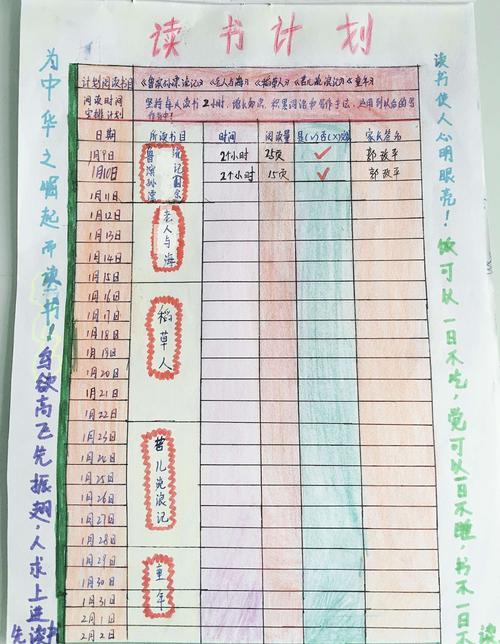 读书计划
计划阅读书目 《鲁滨孙漂流记》《老人与海》《稻草人》《昆儿流浪记》《童年》
阅读时间安排计划 坚持每人读书2小时,增长知识,积累词语和写作手法,运用到以后的写作中!
日期 所读书目 时间 阅读量 是(√)否(×) 家长签名
1月9日 2个小时 25页 ✓ 郭改平
1月10日 2个小时 15页 ✓ 郭改平
1月11日
鲁滨孙漂流记
1月12日
1月13日
1月14日
老人与海
1月15日
1月16日
1月17日
1月18日
1月19日
1月20日
1月21日
1月22日
稻草人
1月23日
1月24日
1月25日
1月26日
1月27日
1月28日
儿流浪记
1月29日
1月30日
1月31日
2月1日
2月2日
童年
为中华之崛起而读书!鸟欲高飞先振翅,人求上进先读书
读书使人心明眼亮!饭可以一日不吃,觉可以一日不睡,书不一日不读